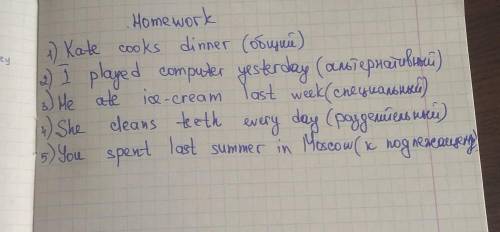 Homework
1) Kate cooks dinner (общий)
2) I played computer yesterday (альтернативный)
3) He ate ice-cream last week (специальный)
4) She cleans teeth every day (разделительный)
5) You spent last summer in Moscow (к подлежащему)